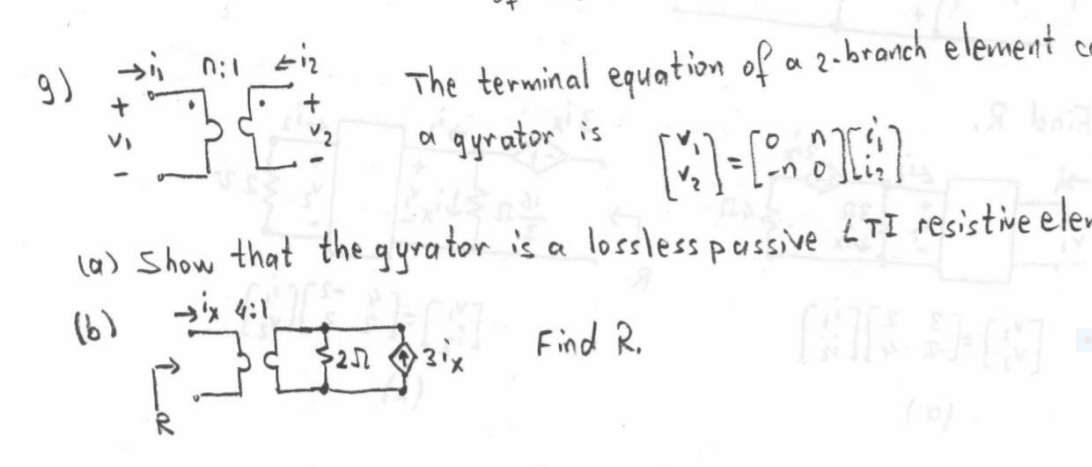 9) →i₁ n:1 ←i₂ The terminal equation of a 2-branch element
+ + a gyrator is [v₁ v₂] = [0 n -n 0] [i₁ i₂]
v₁ v₂
- -
(a) Show that the gyrator is a lossless passive LTI resistive
(b) →iₓ 4:1
2Ω 3iₓ Find R.
R